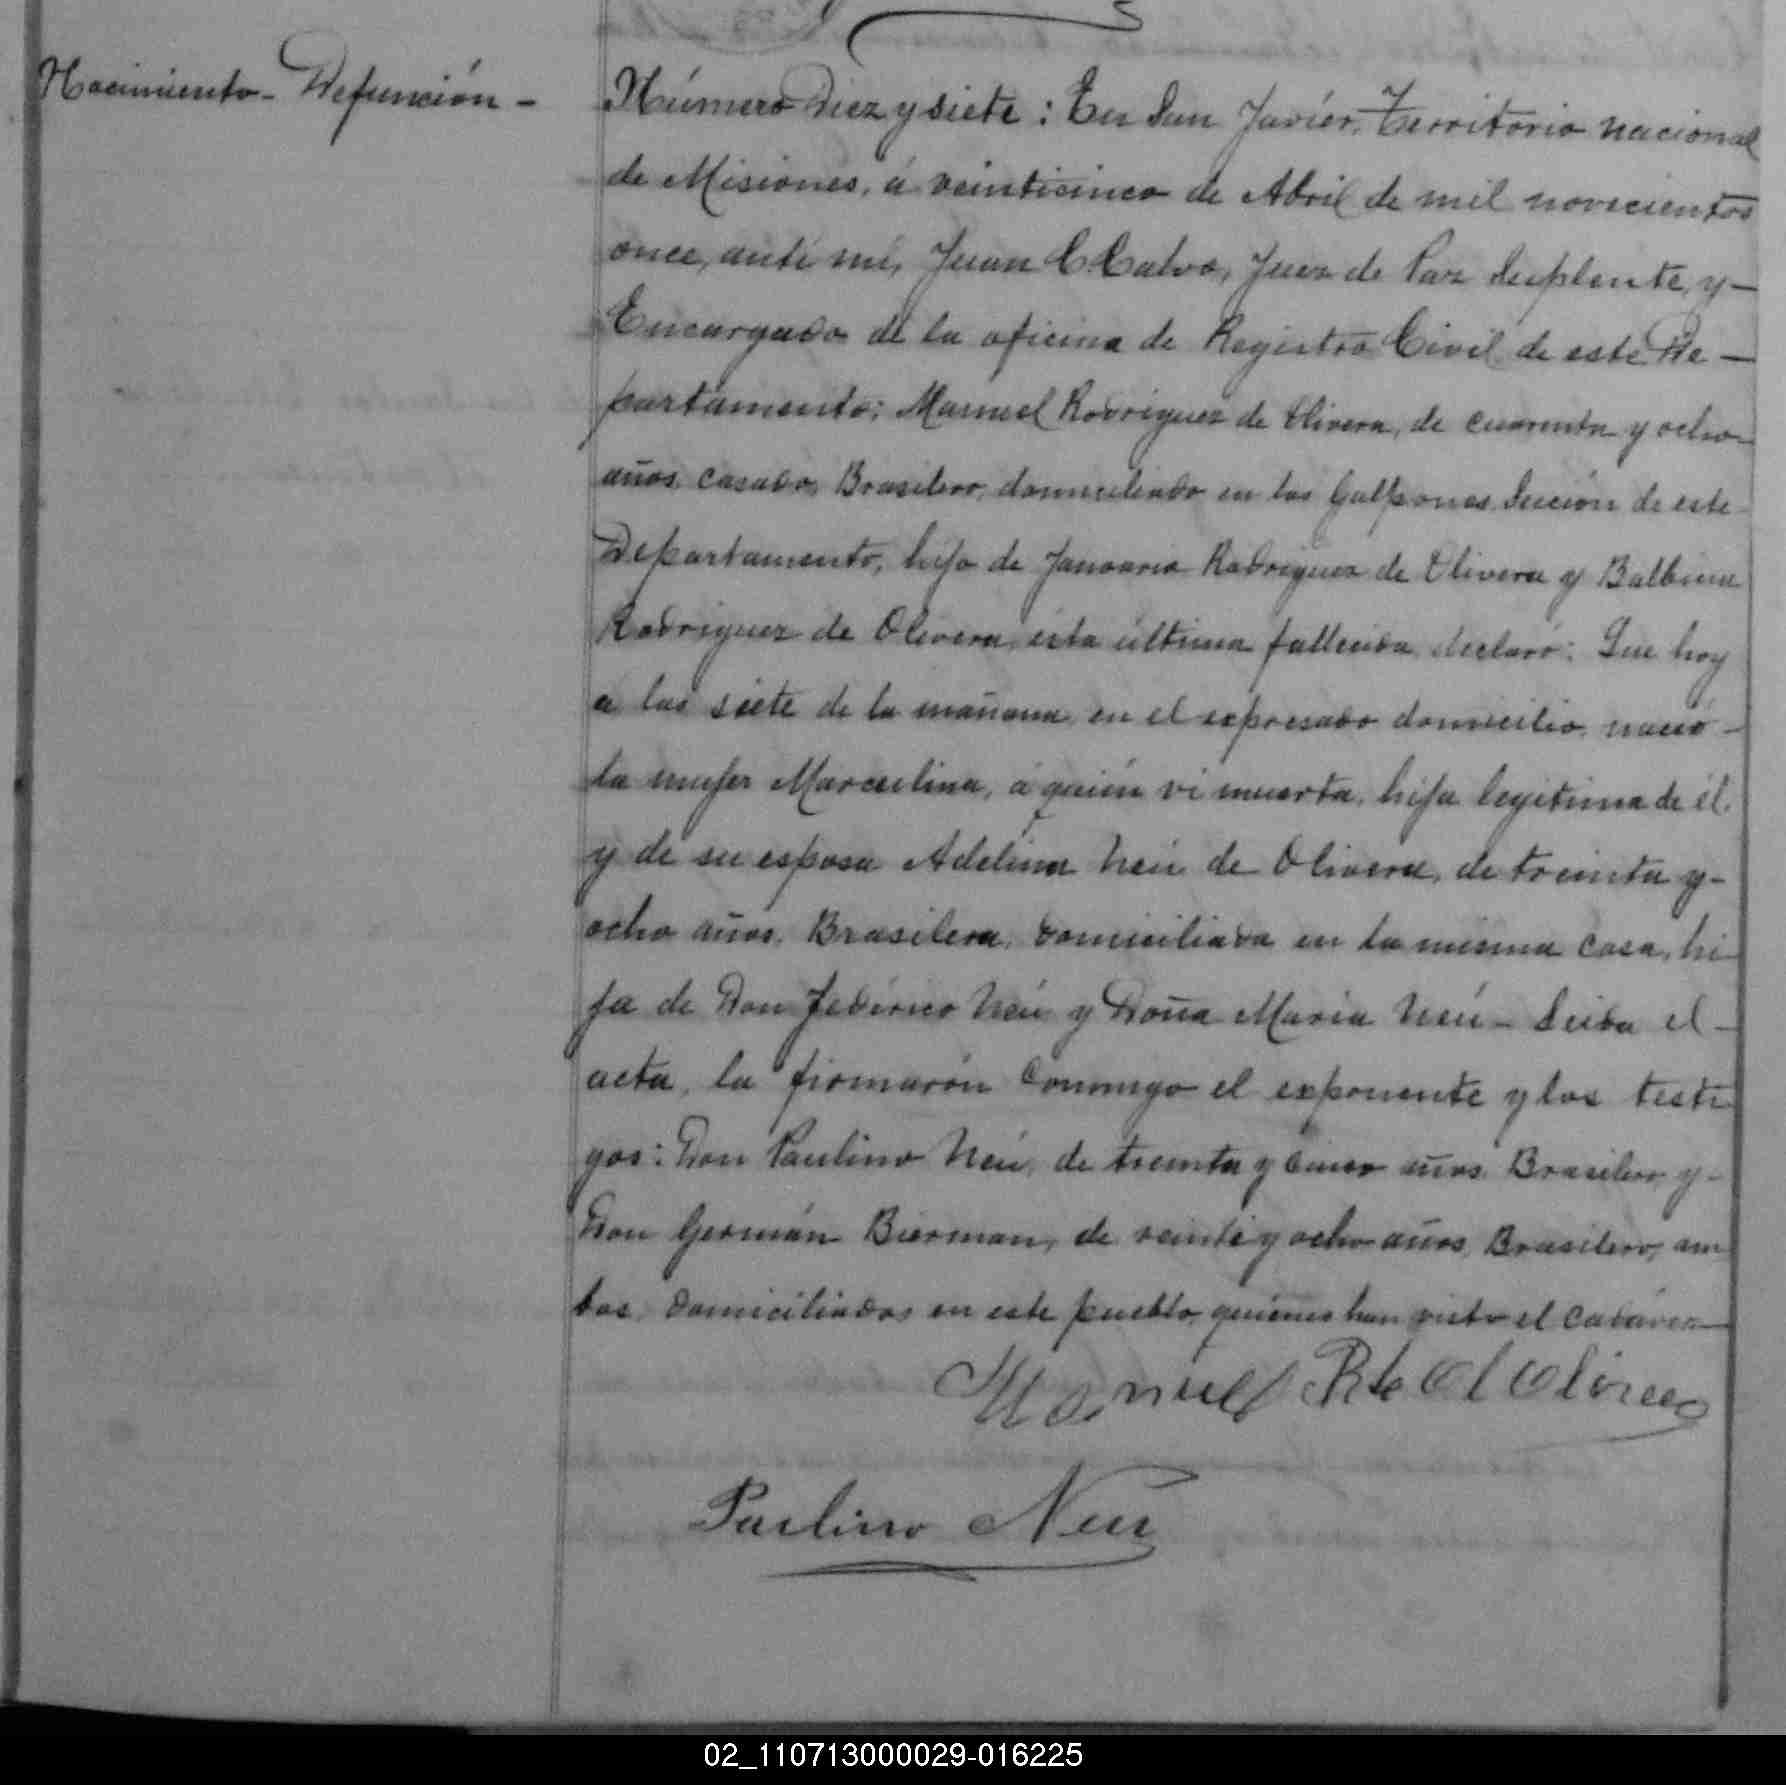 Nacimiento - Defunción -
Número Diez y siete : En San Javiér, Territorio nacional
de Misiones, á veinticinco de Abril de mil novecientos
once, ante mí, Juan C. Calvo, Juez de Paz Suplente, y -
Encargado de la oficina de Registro Civil de este De -
partamento; Manuel Rodriguez de Olivera, de cuarenta y ocho
años, casado, Brasilero, domiciliado en los Galpones, Sección de este
Departamento, hijo de Januario Rodriguez de Olivera y Balbina
Rodriguez de Olivera, esta última fallecida, declaró: Que hoy
a las siete de la mañana, en el expresado domicilio, nació -
la mujer Marcelina, á quién vi muerta, hija legítima de él
y de su esposa Adelina Neú de Olivera, de treinta y -
ocho años, Brasilera, domiciliada en la misma casa, hi
ja de Don Federico Neú y Doña Maria Neú - Leida el -
acta, la firmarón conmigo el exponente y los testi
gos: Don Paulino Neú, de treinta y cinco años, Brasilero, y -
Don Germán Bierman, de veinte y ocho años, Brasilero, am
bos domiciliados en este pueblo, quiénes han visto el cadáver
Manuel Rodriguez Olivera
Paulino Neú
02_110713000029-016225